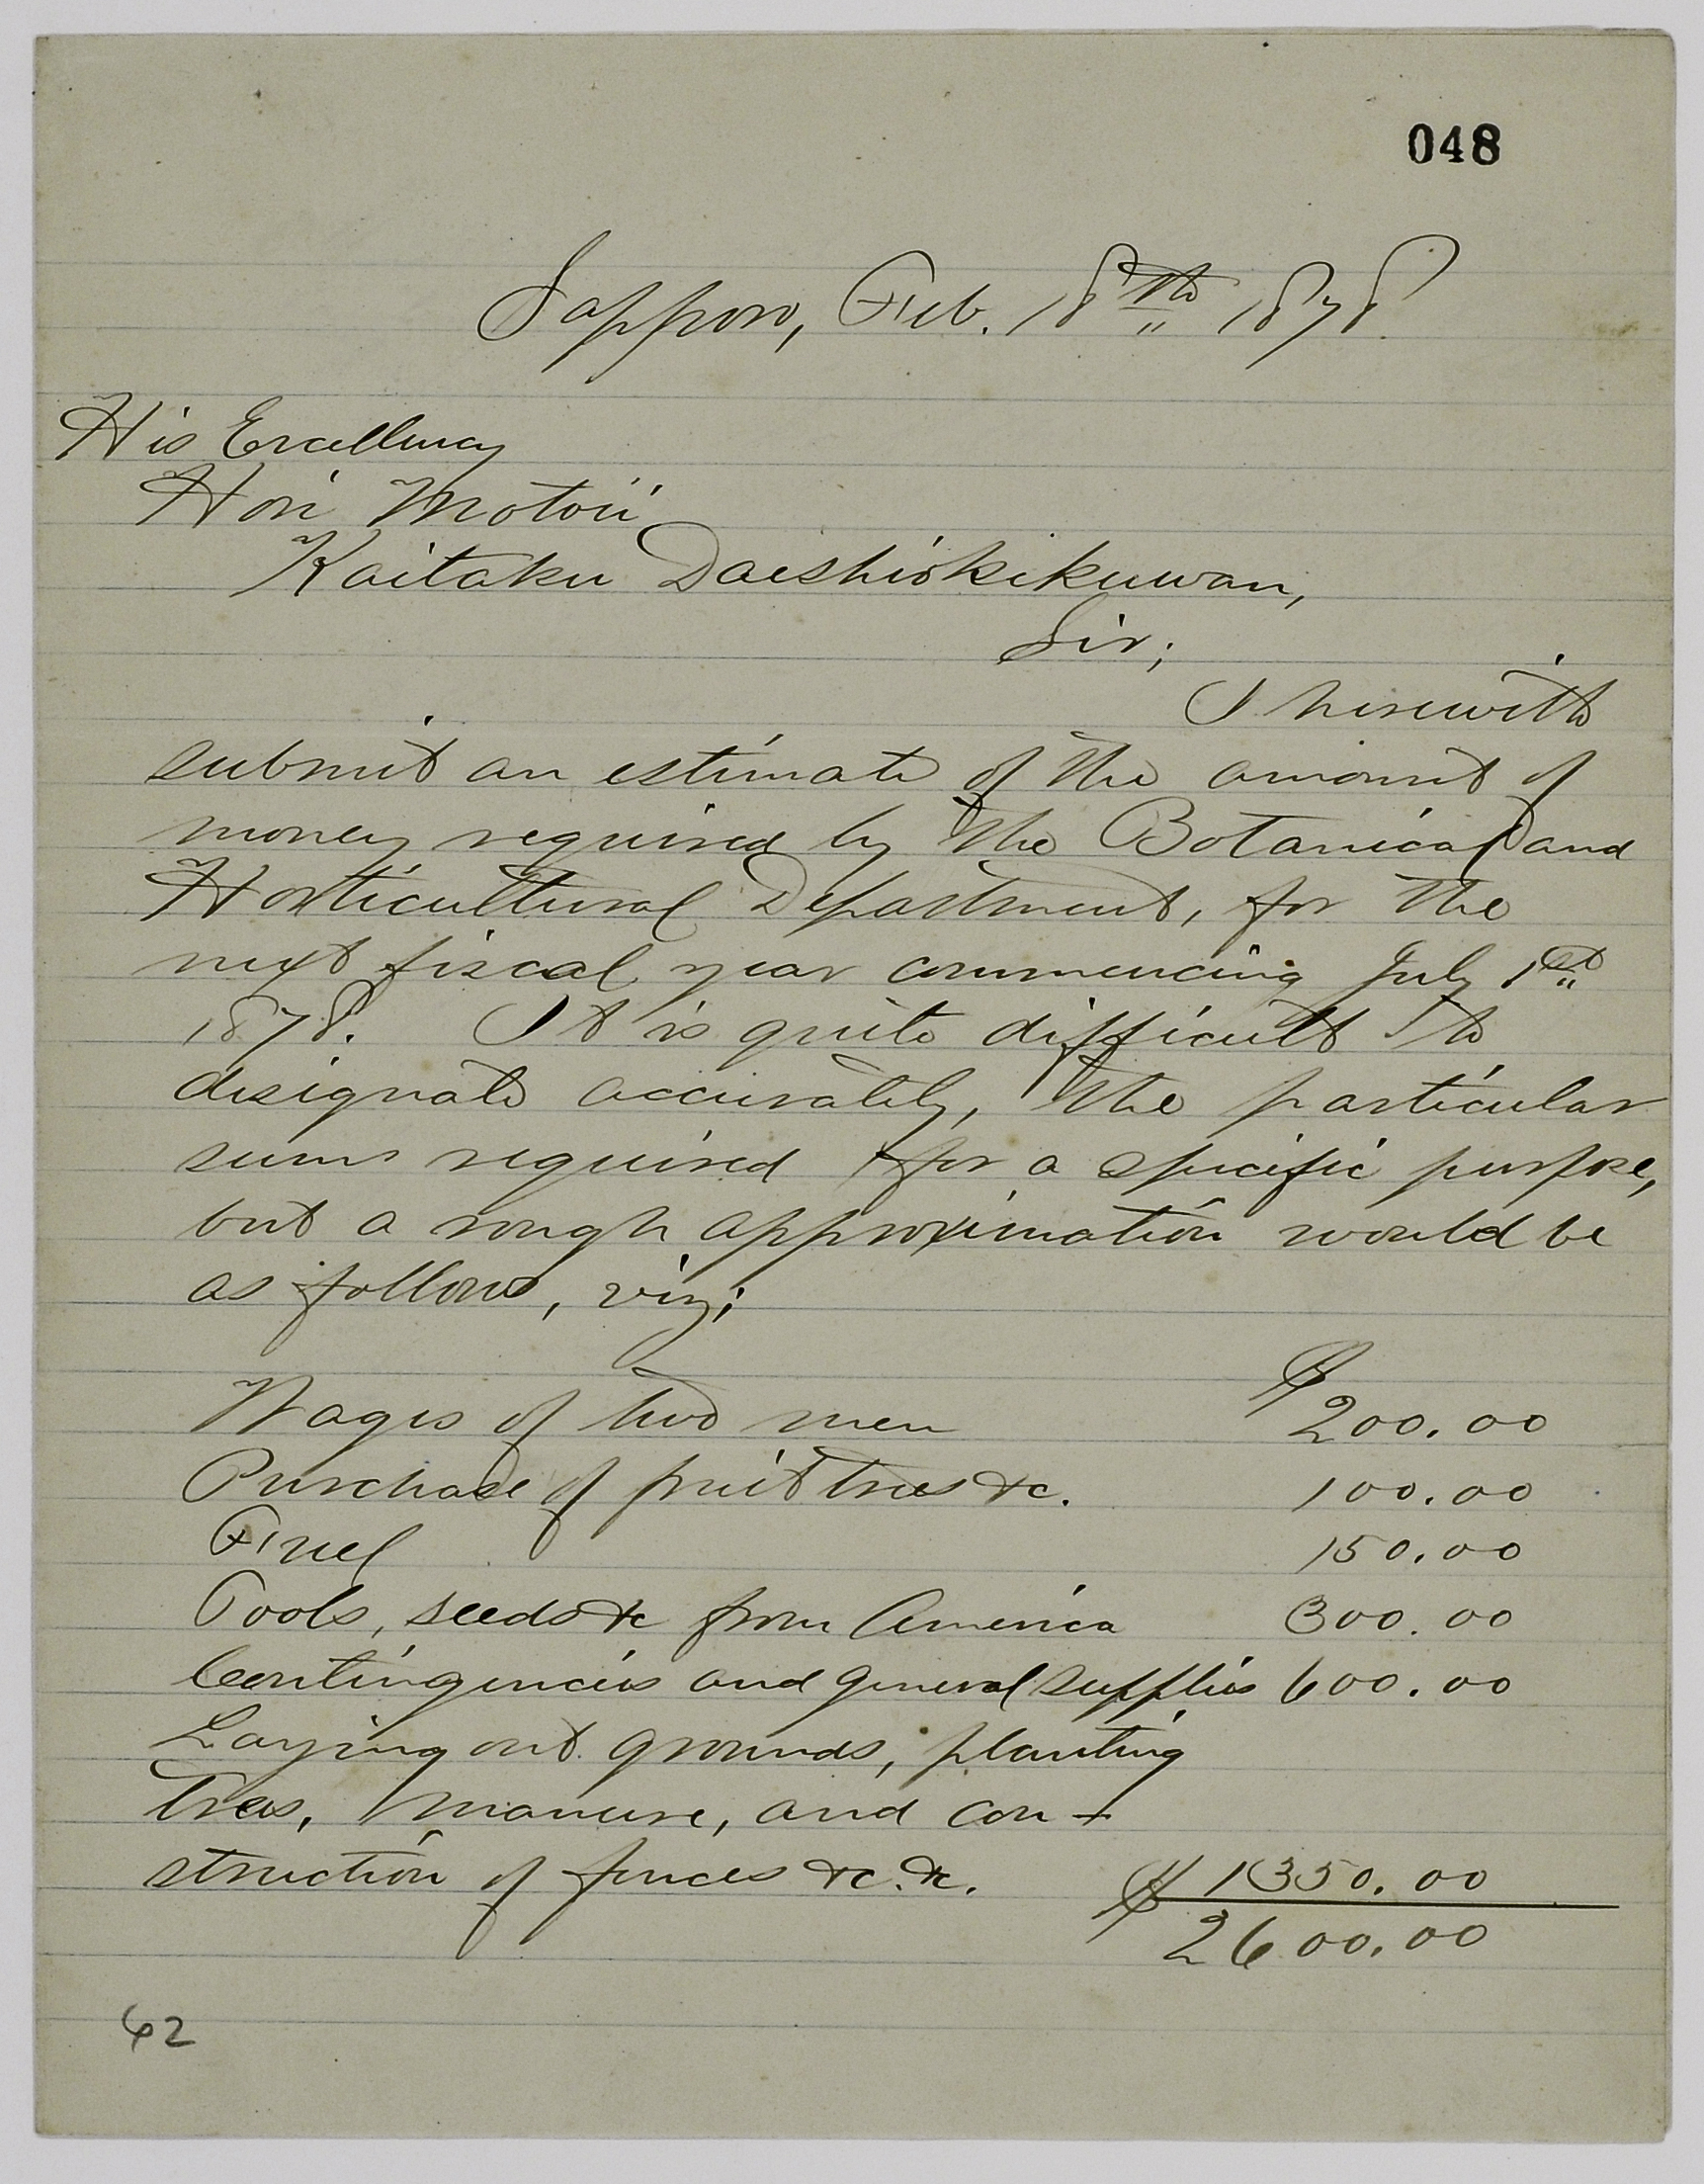 048
Sapporo, Feb. 18th 1878.
His Excellency
Hori Motoii
Kaitaku Daishiokikuwan,
Sir;
I herewith
submit an estimate of the amount of
money required by the Botanical and
Horticultural Department, for the
next fiscal year commencing July 1st
1878. It is quite difficult to
designate accurately, the particular
sum required for a specific purpose,
but a rough approximation would be
as follows, viz;
Wages of two men $ 200.00
Purchase of fruit trees &c. 100.00
Fuel 150.00
Tools, seeds &c from America 300.00
Contingencies and general supplies 600.00
Laying out grounds, planting
trees, manure, and con-
struction of fences &c. &c. 1350.00
$ 2600.00
62